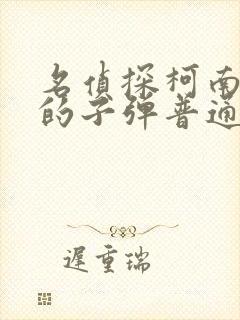 名侦探柯南
的子弹普通
遲重瑞